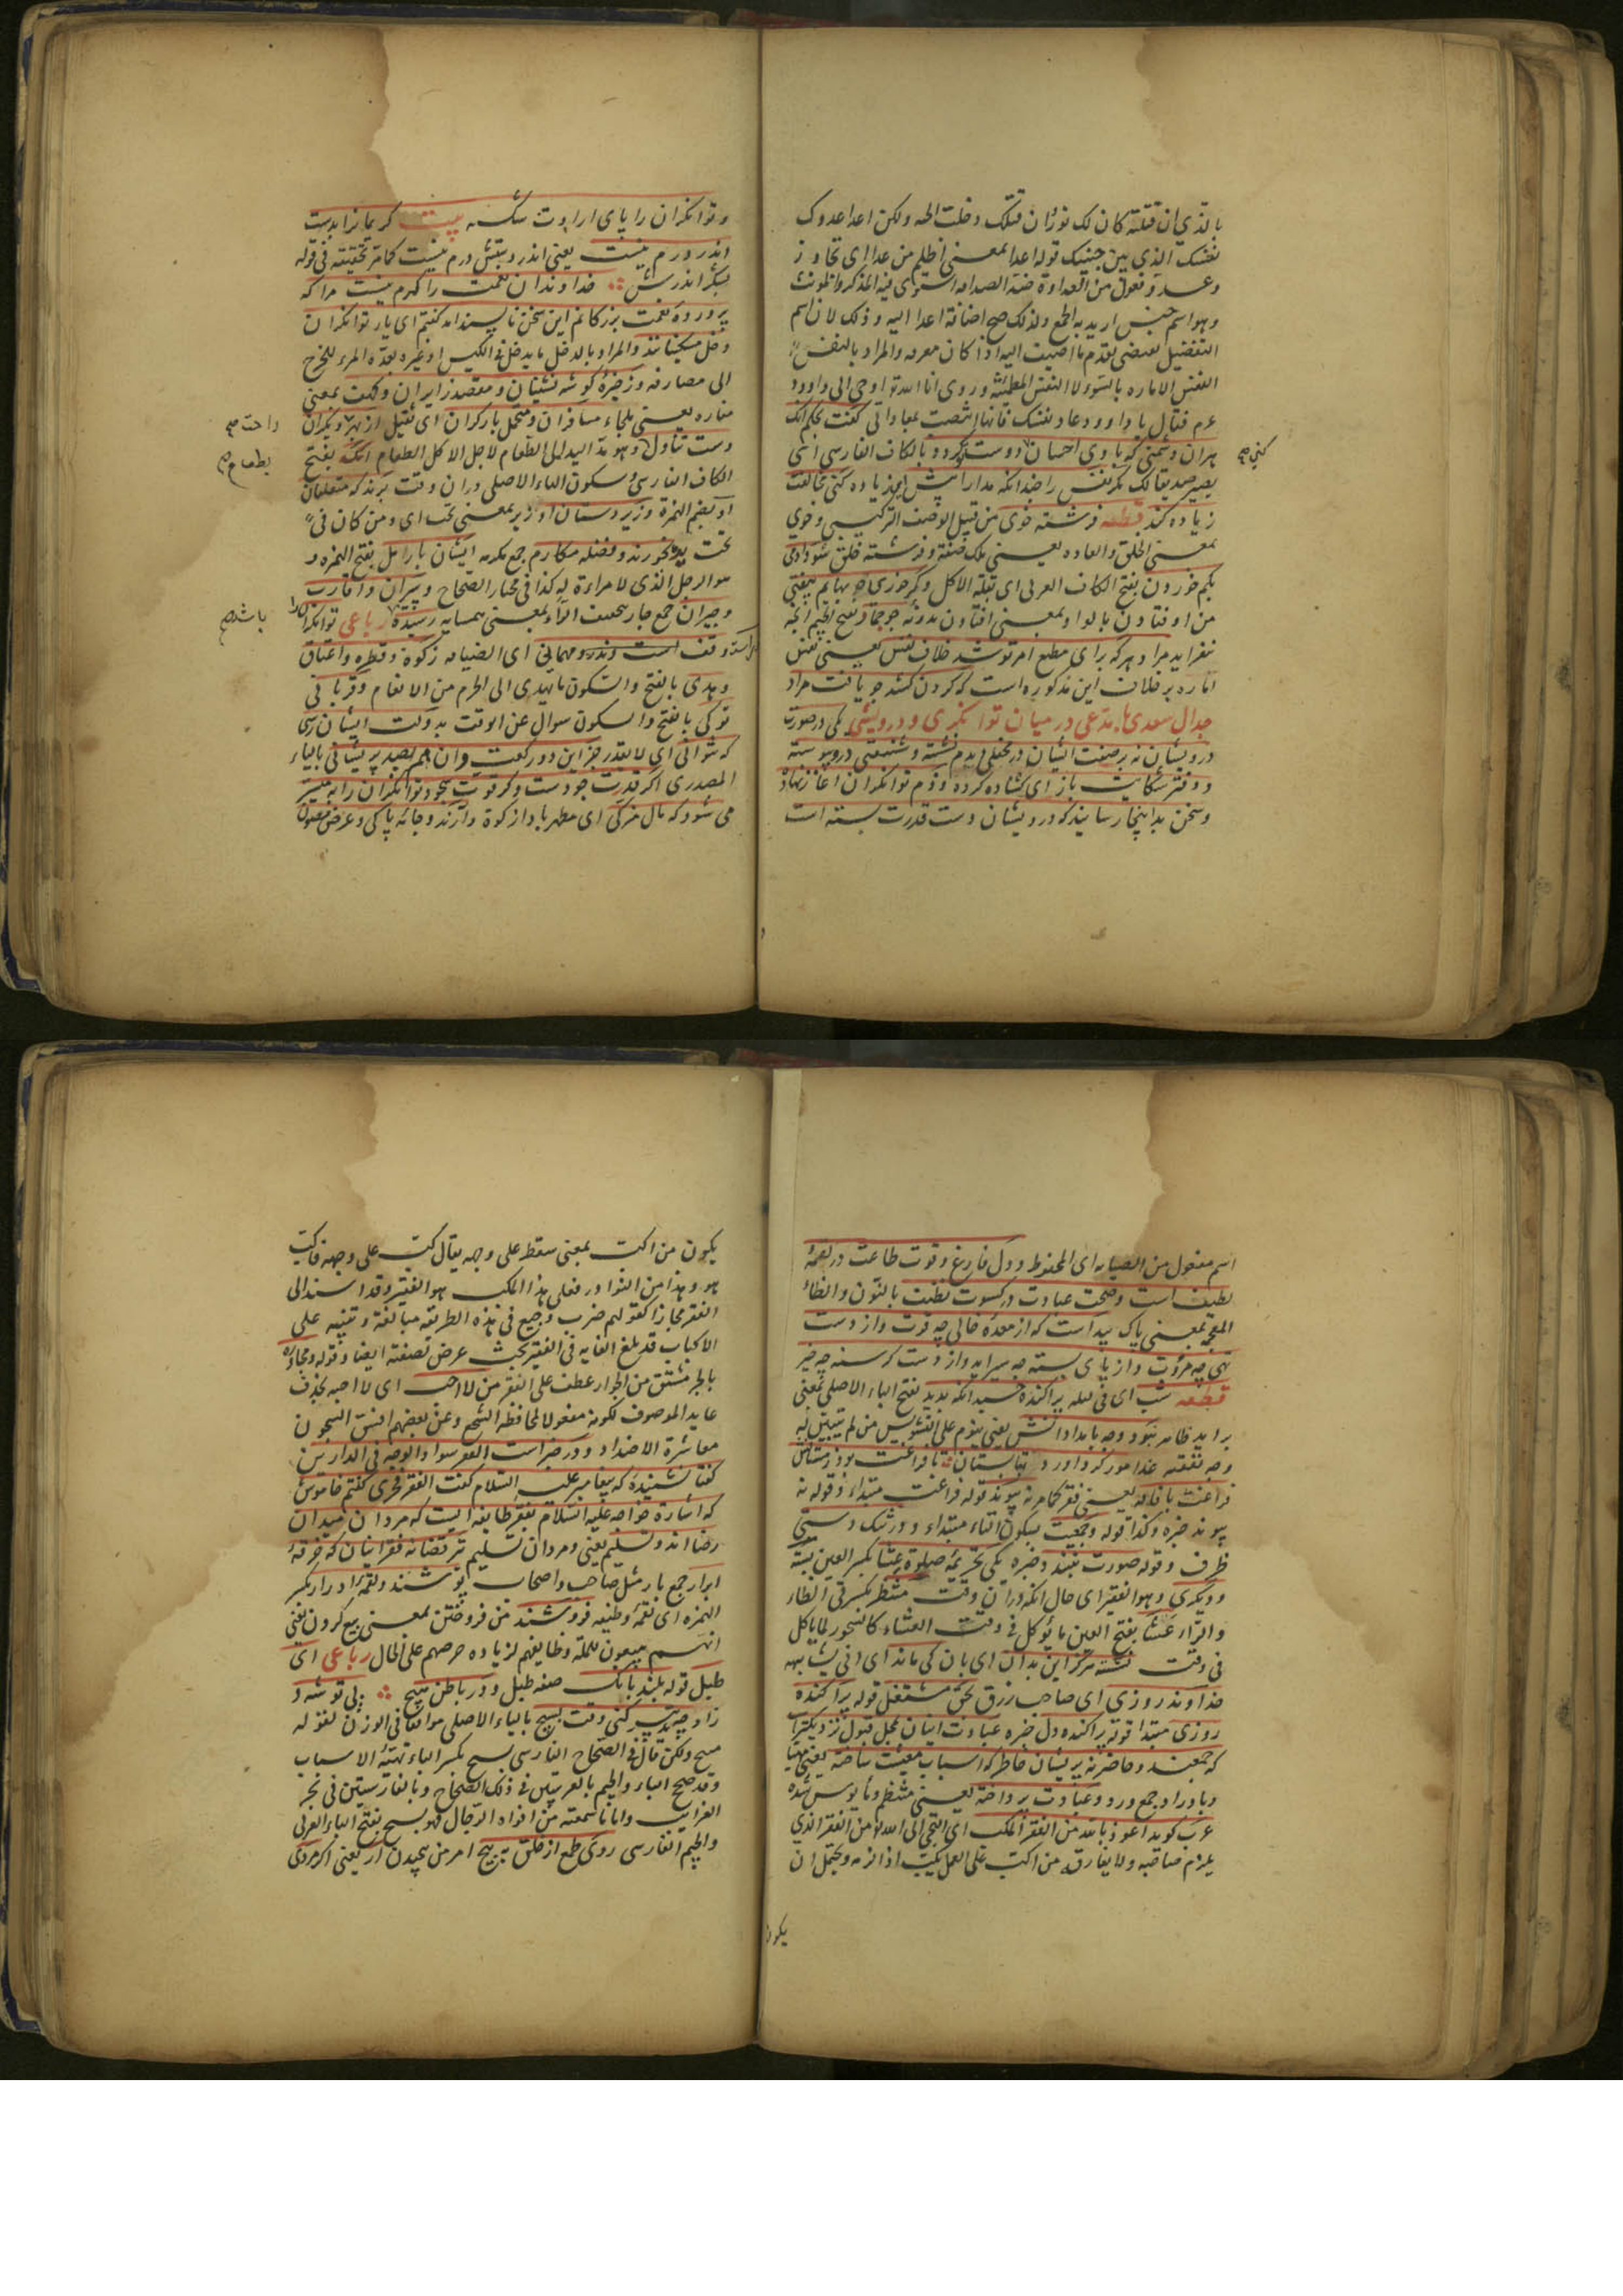 بالذی ان قتلته کان لک نورا و ان قتلک دخلت الجنه ولکن اعدا عدوک
نفسک الذی بین جنبیک قوله اعدا بمعنی اظلم من عدا ای تجاوز
وعدو فعول من العداوة ضد الصداقه استوی فیه المذکر والمونث
وهو اسم جنس ارید به الجمع ولذلک صح اضافة اعدا الیه وذلک لان اسم
التفضیل بعض ما اضیف الیه اذا کان معرفه والمراد بالنفس
النفس الاماره بالسوء لا النفس المطمئنه وروی ان الله تعالی اوحی الی داود
عم فقال یا داود عاد نفسک فانها انتصبت بمعاداتی گفت بحکم آنکه
هر آن دشمنی که با وی احسان دوست گردد بالکاف الفارسی ای
یصیر صدیقا لک مگر نفس را چندانکه مدارا پیش زیاده کنی مخالفت
زیاده کند قطعه فرشته خوی من قبیل الوصف الترکیبی وخوی
بمعنی الخلق والعاده یعنی ملک صفت و فرشته خلق شود آدمی
بکم خوردن بفتح الکاف العربی ای بقلة الاکل وگر خورد چو بهایم بیفتی
من اوفتادن بالواو بمعنی افتادن چو جماد بفتح الجیم
مراد هر که بر آری مطیع امر تو شد خلاف نفس یعنی نفس
اماره بر خلاف این مذکوره است که گردن کشد چو یافت مراد
جدال سعدی با مدعی در میان توانگری و درویشی یکی در صورت
درویشان نه بر صفت ایشان در محفلی دیدم نشسته و شنعتی در پیوسته
و دفتر شکایت باز ای گشاده کرده و ذم توانگران آغاز نهاده
وسخن بدانجا رسانیده که درویشان دست قدرت بسته است
کنی صح
و توانگران را پای ارادت شکسته بیت کریمانرا بدست
اندر درم نیست یعنی اندر دستش درم نیست کما مر تحقیقه فی قوله
بشکر اندرش خداوندان نعمت را کرم نیست مرا که
پرورده نعمت بزرگانم این سخن ناپسند آمد گفتم ای یار توانگران
دخل مسکینانند والمراد بالدخل ما یدخل فی الکیس او غیره یعده المرء للخرج
الی مصارفه و ذخیره گوشه نشینان و مقصد زایران و کهف بمعنی
مغاره یعنی ملجاء مسافران و متحمل بار گران ای ثقیل از بهر دیگران
دست تناول وهو مد الید الی الطعام لاجل الاکل الطعام آنگه بفتح
الکاف الفارسی وسکون الهاء الاصلی در آن وقت برند که متعلقان
او بضم الهمزة وزیردستان او زیر بمعنی تحت ای ومن کان فی
تحت یده بخورند و فضله مکارم جمع مکرمه ایشان با رامل بفتح الهمزه و
هو الرجل الذی لا مراءة له کذا فی مختار الصحاح و پیران و اقارب
وجیران جمع جار بتخفیف الراء بمعنی همسایه رسیده رباعی توانگرانرا
وقف است ونذر ومهمانی ای الضیافه زکوة وفطره واعتاق
وهدی بالفتح والسکون ما یهدی الی الحرم من الانعام وقربانی
تو کی بالفتح والسکون سوال عن الوقت بدولت ایشان رسی
که نتوانی ای لا تقدر جز این دو رکعت وآن هم بصد پریشانی بالیاء
المصدری اگر قدرت جودست وگر قوت سجود توانگران را به میسر
می شود که مال مزکی ای مطهر باداء زکوة دارند وجامه پاکی وعرض مصون
راحت صح
بطعام صح
باشد صح
اسم مفعول من الصیانه ای المحفوظ و دل فارغ وقوت طاعت در لقمه
لطیف است و صحت عبادت در کسوت نظیف بالنون والظاء
المعجمه بمعنی پاک پیداست که از معده خالی چه قوت واز دست
تهی چه مروت واز پای بسته چه سیر آید واز دست گرسنه چه خیر
قطعه شب ای فی لیله پراکنده خسبد آنکه پدید بفتح الباء الاصلی بمعنی
برآید ظاهر نبود وجه بامدادانش یعنی ینوم علی التشویش من لم یتبین له
وجه نفقته غدا مور گرد آورد بتابستان تا فراغت بود زمستانش
فراغت با فاقه یعنی فقر کما مر نه پیوندد قوله فراغت مبتداء وقوله نه
پیوندد خبره وکذا قوله وجمعیت بسکون التاء مبتداء و در تنگ دستی
ظرف وقوله صورت نبندد خبره یکی تحریمه صلوة عشا بکسر العین بسته
ودیگری وهو الفقیر ای حال آنکه در آن وقت منتظر بکسرتی الظاء
والراء عشا بفتح العین ما یؤکل فی وقت العشاء کالسحور لما یاکل
فی وقت نشسته هرگز این بدان ای بآن کی ماند ای ان یشابهه
خداوند روزی ای صاحب رزق بحق مشتغل قوله پراکنده
روزی مبتدا قوله پراکنده دل خبره عبادت اینان بمحل قبول نزدیکترست
که جمعند و حاضر نه پریشان خاطر که اسباب معیشت ساخته یعنی مهیا
و باوراد جمع ورد و عبادت پرداخته یعنی منتظم و مأیوس شده
عرب گوید اعوذ بالله من الفقر المکب ای التجی الی الله من الفقر الذی
یلزم صاحبه ولا یفارقه من اکب علی العمل یکب اذا لزمه ویحتمل ان
یکون
یکون من اکب بمعنی سقط علی وجهه یقال کبه علی وجهه فاکب
هو وهذا من النوادر فعلی هذا المکب هو الفقیر وقد اسند الی
الفقر مجازا کقولهم ضرب وجیع فی هذه الطریقه مبالغة وتنبیه علی
الاکباب قد بلغ الغایه فی الفقیر بحیث عرض لصفته ایضا وقوله ومجاورة
بالجر مشتق من الجوار عطف علی الفقر من لا احب ای لا احبه بحذف
عاید الموصوف لکونه مفعولا لمحافظه السجع وعن بعضهم اضیق السجون
معاشرة الاضداد و در خبر است الفقر سواد الوجه فی الدارین
گفتا نشنیده که پیغامبر علیه السلام گفت الفقر فخری گفتم خاموش
که اشارة خواجه علیه السلام بفقر طایفه ایست که مردان میدان
رضا اند وتسلیم یعنی ومردان تسلیم تیر قضا نه فقر اینان که خرقه
ابرار جمع بار مثل صاحب واصحاب پوشند و لقمه ادرار بکسر
الهمزه ای لقمه وظیفه فروشند من فروختن بمعنی بیع کردن یعنی
انهم یبیعون وظایفهم لزیاده حرصهم علی المال رباعی ای
طبل قوله بلند بانک صفه طبل و در باطن هیچ بی توشه و
زاد چه تدبیر کنی وقت بسیج بالیاء الاصلی موافقا فی الوزن لقوله
هیچ ولکن قال فی الصحاح الفارسی بسیج بکسر الباء تهیئة الاسباب
وقد صح الباء والجیم بالعربیتین فی ذلک الصحاح وبالفارسیتین فی بحر
الغرایب واما ما سمعته من افواه الرجال فهو بسیچ بفتح الباء العربی
والجیم الفارسی روی طمع از خلق بپیچ امر من پیچیدن ار یعنی اگر مردی